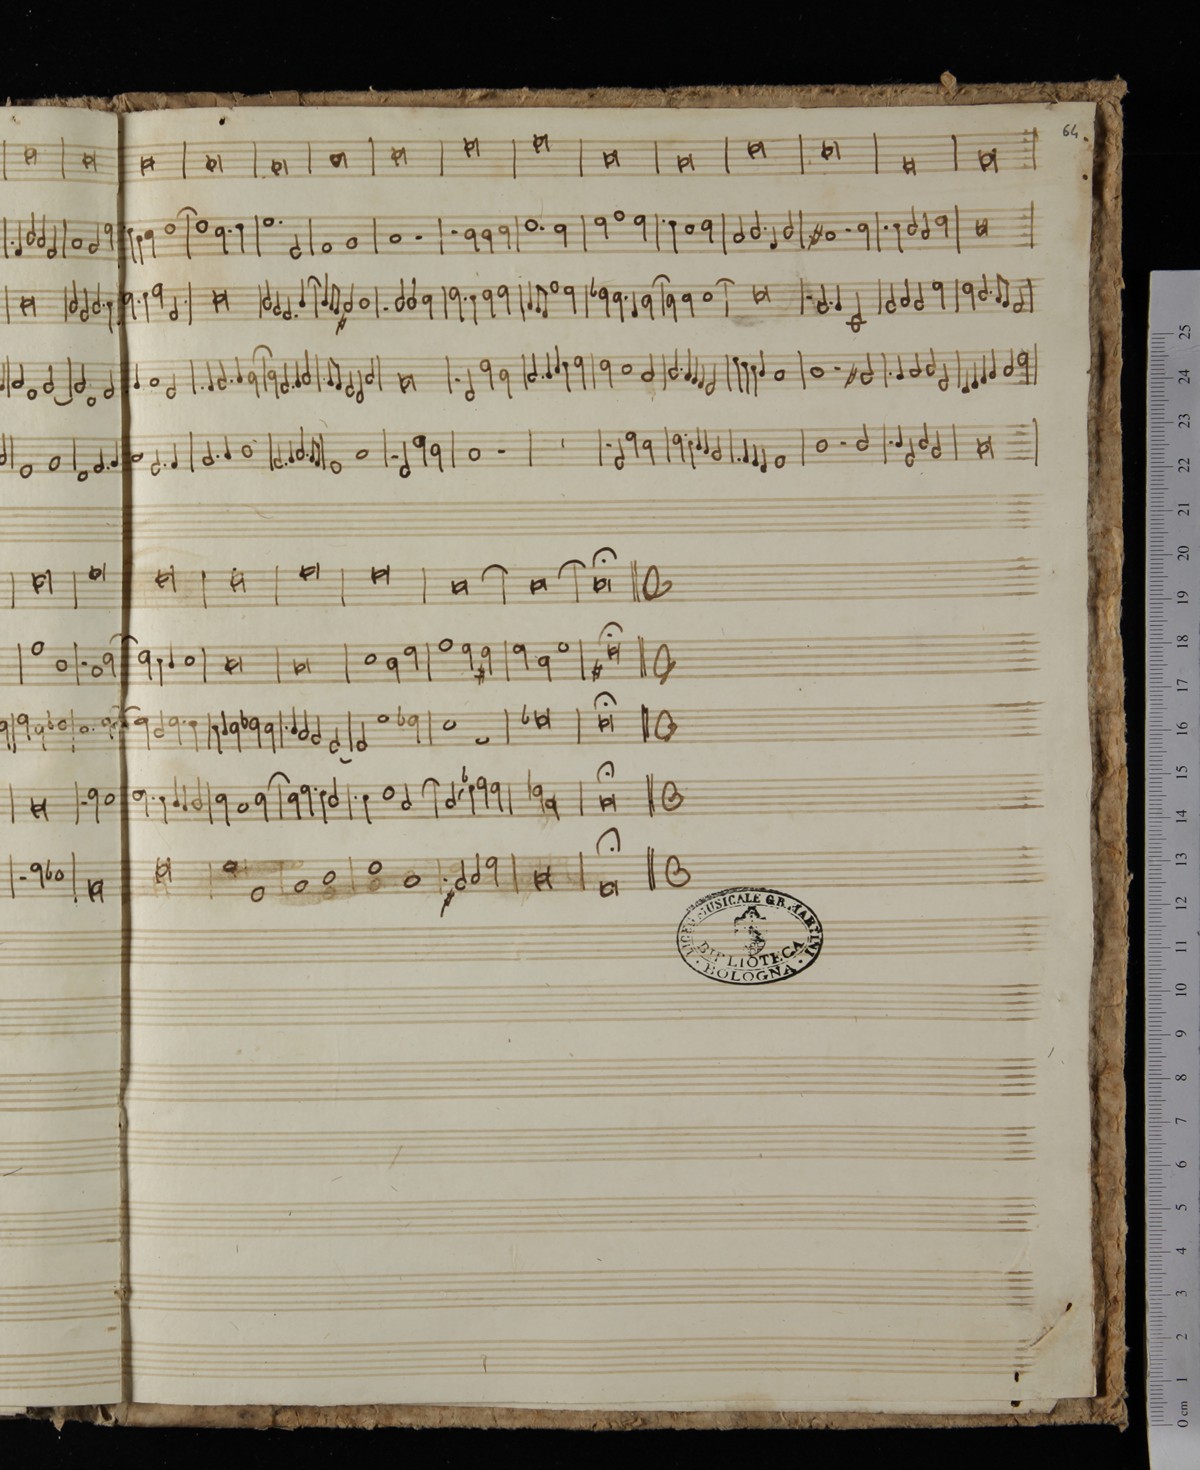 64.
LICEO MUSICALE G.B. MARTINI
BIBLIOTECA
· BOLOGNA ·
25
24
23
22
21
20
19
18
17
16
15
14
13
12
11
10
9
8
7
6
5
4
3
2
1
0 cm